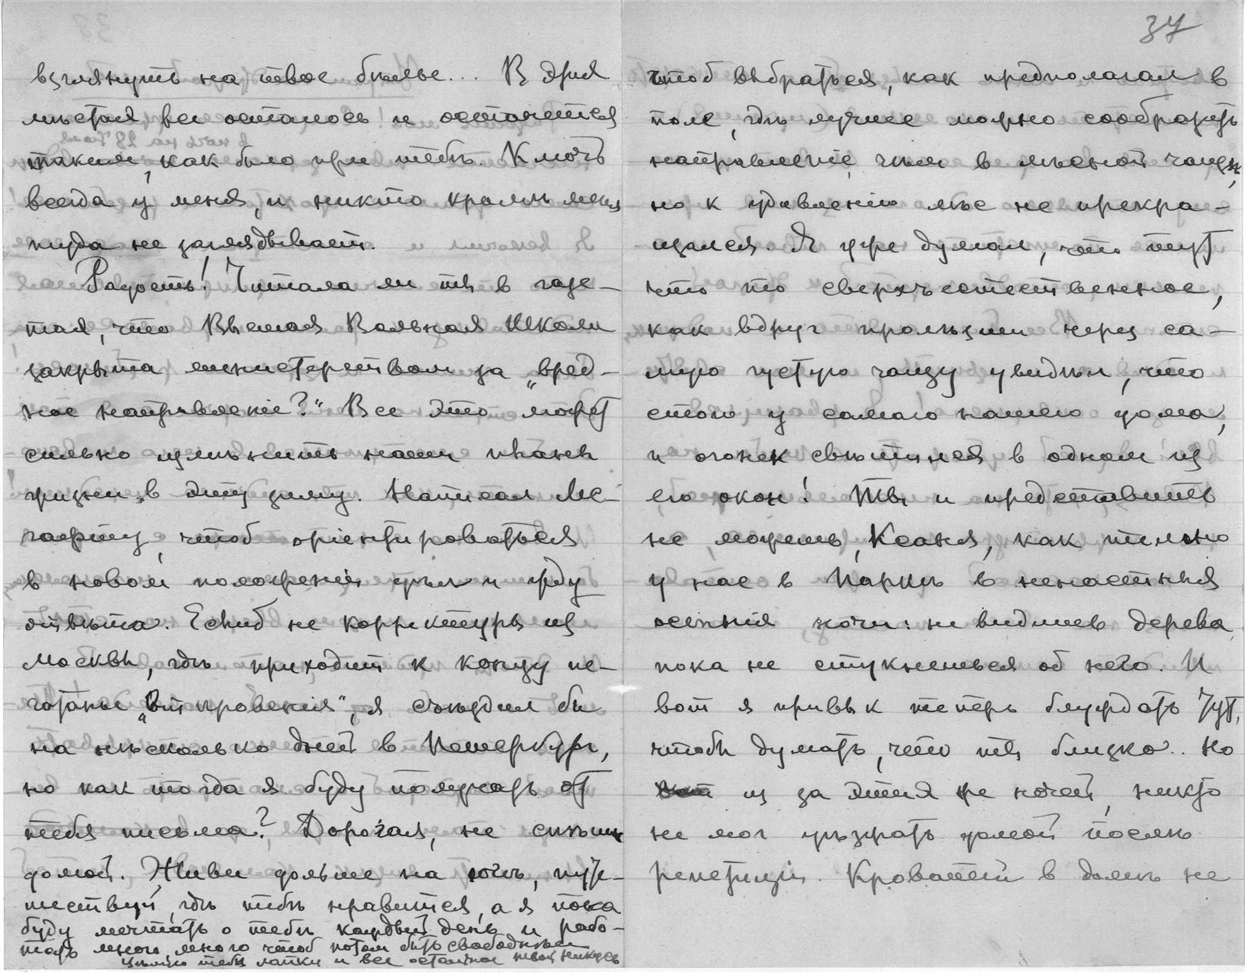 взглянуть на твое бѣлье... В этих
мѣстах все осталось и останется
таким, как было при тебѣ. Ключ
всегда у меня, и никто кромѣ меня
туда не заглядывает.
Радость! Читала ли ты в газе-
тах, что Высшая Вольная Школа
закрыта министерством за „вред-
ное направленіе?“ Все это может
сильно измѣнить наши планы
жизни в эту зиму. Написал Ме-
, чтоб оріентироваться
в новом положеніи дѣл и жду
отвѣта. Если б не корректуры из
Москвы, гдѣ приходит к концу пе-
чатанье „Откровенія“, я съѣздил бы
на нѣсколько дней в Петербург,
но как тогда я буду получать от
тебя письма? Дорогая, не спѣши
домой. Живи дольше на югѣ, путе-
шествуй, гдѣ тебѣ нравится, а я пока
буду мечтать о тебѣ каждый день и рабо-
тать много, много чтоб потом быть свободным
Цѣлую тебѣ лапки и все остальное твой
37
чтоб выбраться, как предполагал в
поле, гдѣ лучше можно сообразить
направленіе, чѣм в лѣсной чащѣ,
но к удивленію лѣс не прекра-
щался. Я уже думал, что тут
что то сверхъестественное,
как вдруг пролѣзши через са-
мую густую чащу увидѣл, что
стою у самаго нашего дома,
и огонек свѣтился в одном из
его окон! Ты и представить
не можешь, Ксана, как темно
у нас в Паркѣ в ненастныя
осеннія ночи: не видишь дерева
пока не стукнешься об него. И
вот я привык теперь блуждать тут,
чтобы думать, что ты близко. Но
из за этих же ночей, никто
не мог уѣзжать домой послѣ
репетиціи. Кроватей в домѣ не